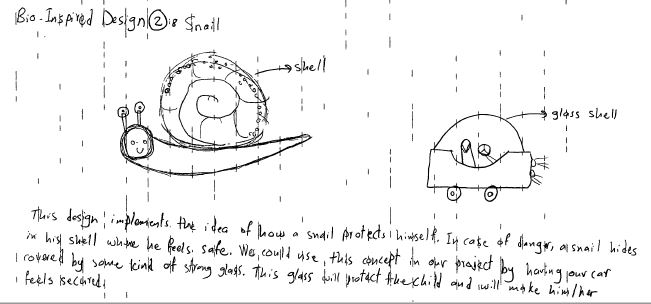 Bio-Inspired Design ②: Snail
shell
glass shell
This design implements the idea of how a snail protects himself. In case of danger, a snail hides
in his shell where he feels safe. We could use this concept in our project by having our car
covered by some kind of strong glass. This glass will protect the child and will make him/her
feels secured.